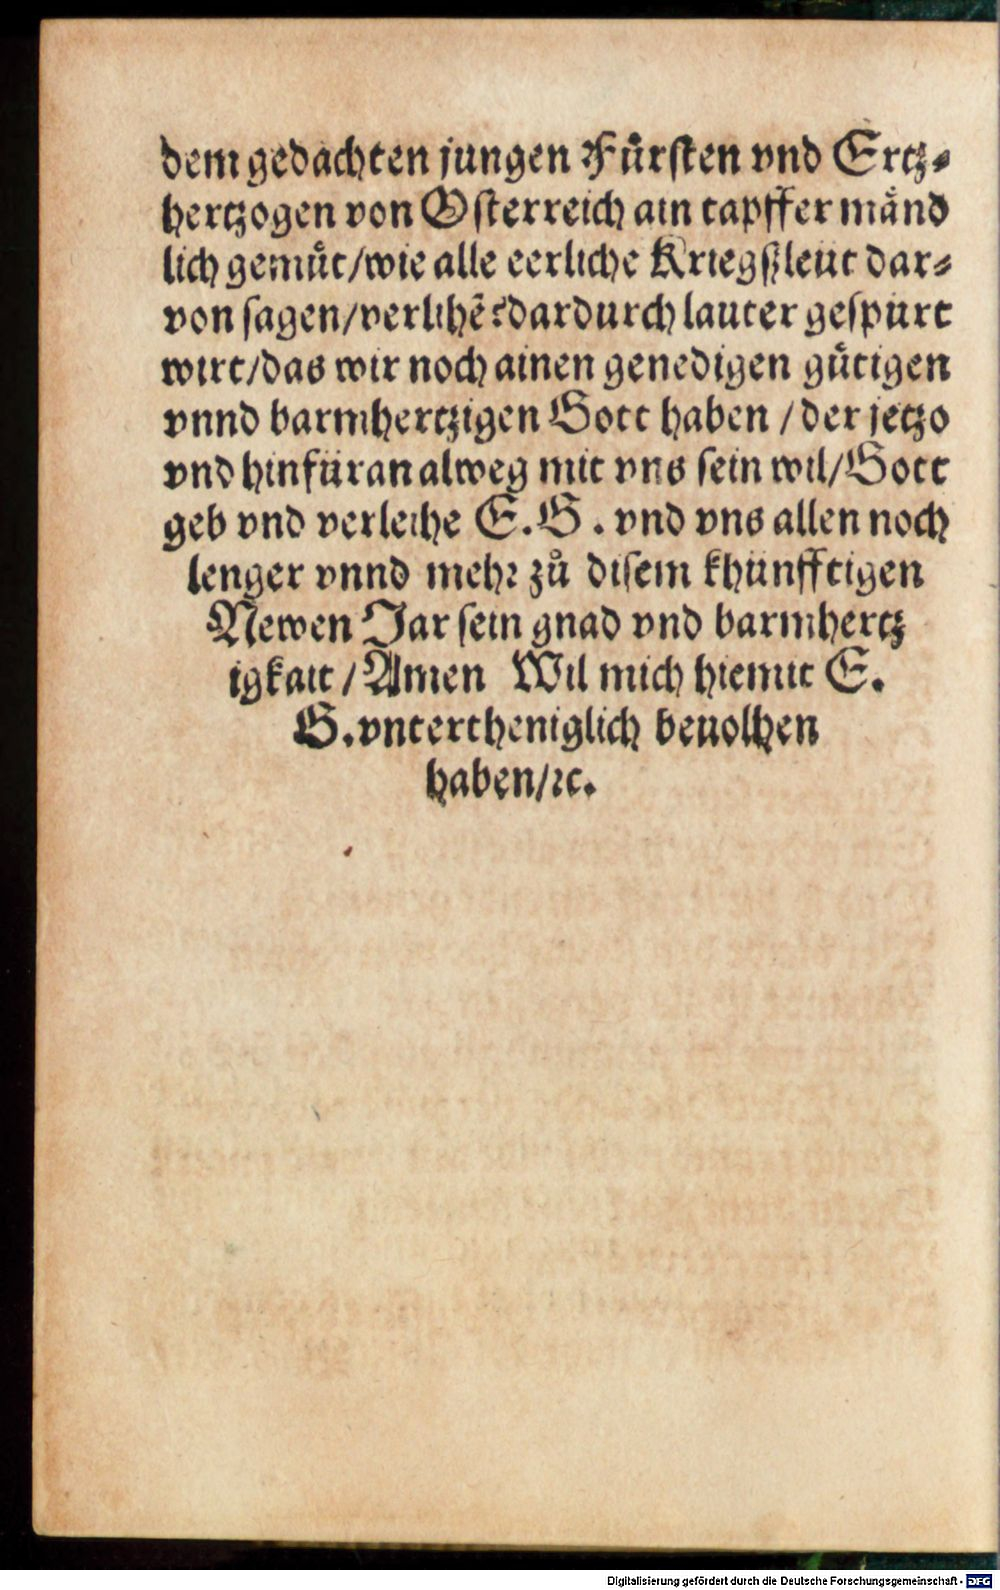 dem gedachten jungen Fürsten vnd Ertz⸗
hertzogen von Osterreich ain tapffer mänd
lich gemüt/wie alle eerliche Kriegßleut dar⸗
von sagen/verlihẽ ꝛdardurch lauter gespürt
wirt/das wir noch ainen genedigen gütigen
vnnd barmhertzigen Gott haben /der jetzo
vnd hinfüran alweg mit vns sein wil/Gott
geb vnd verleihe E.G. vnd vns allen noch
lenger vnnd mehꝛ zů disem khünfftigen
Newen Jar sein gnad vnd barmhertz
igkait /Amen Wil mich hiemit E.
G.vntertheniglich beuolhen
haben/ꝛc.
Digitalisierung gefördert durch die Deutsche Forschungsgemeinschaft - DFG